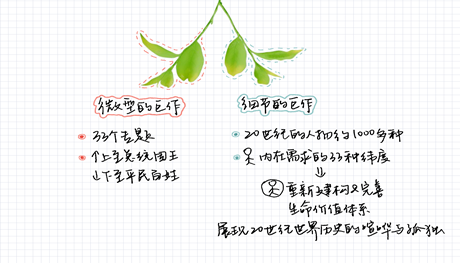 微型的巨作
33个主题
个上至总统国王
下至平民百姓
细节的巨作
20世纪的人物约1000多种
内在需求的33种纬度
重新建构及完善
生命价值体系
展现20世纪世界历史的喧哗与孤独